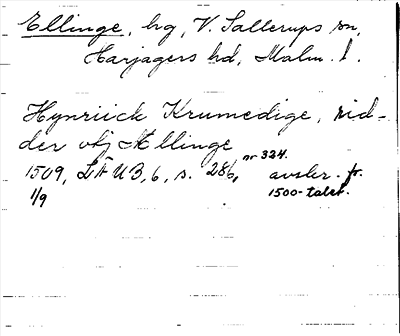 Ellinge, hg, V. Sallerups sn,
Harjagers hd, Malm. l.
Hynriick Krumedige, rid-
der vtj Ællinge
nr 324.
1509, LÄUB, 6, s. 286, avskr. fr.
1/9 1500-talet.